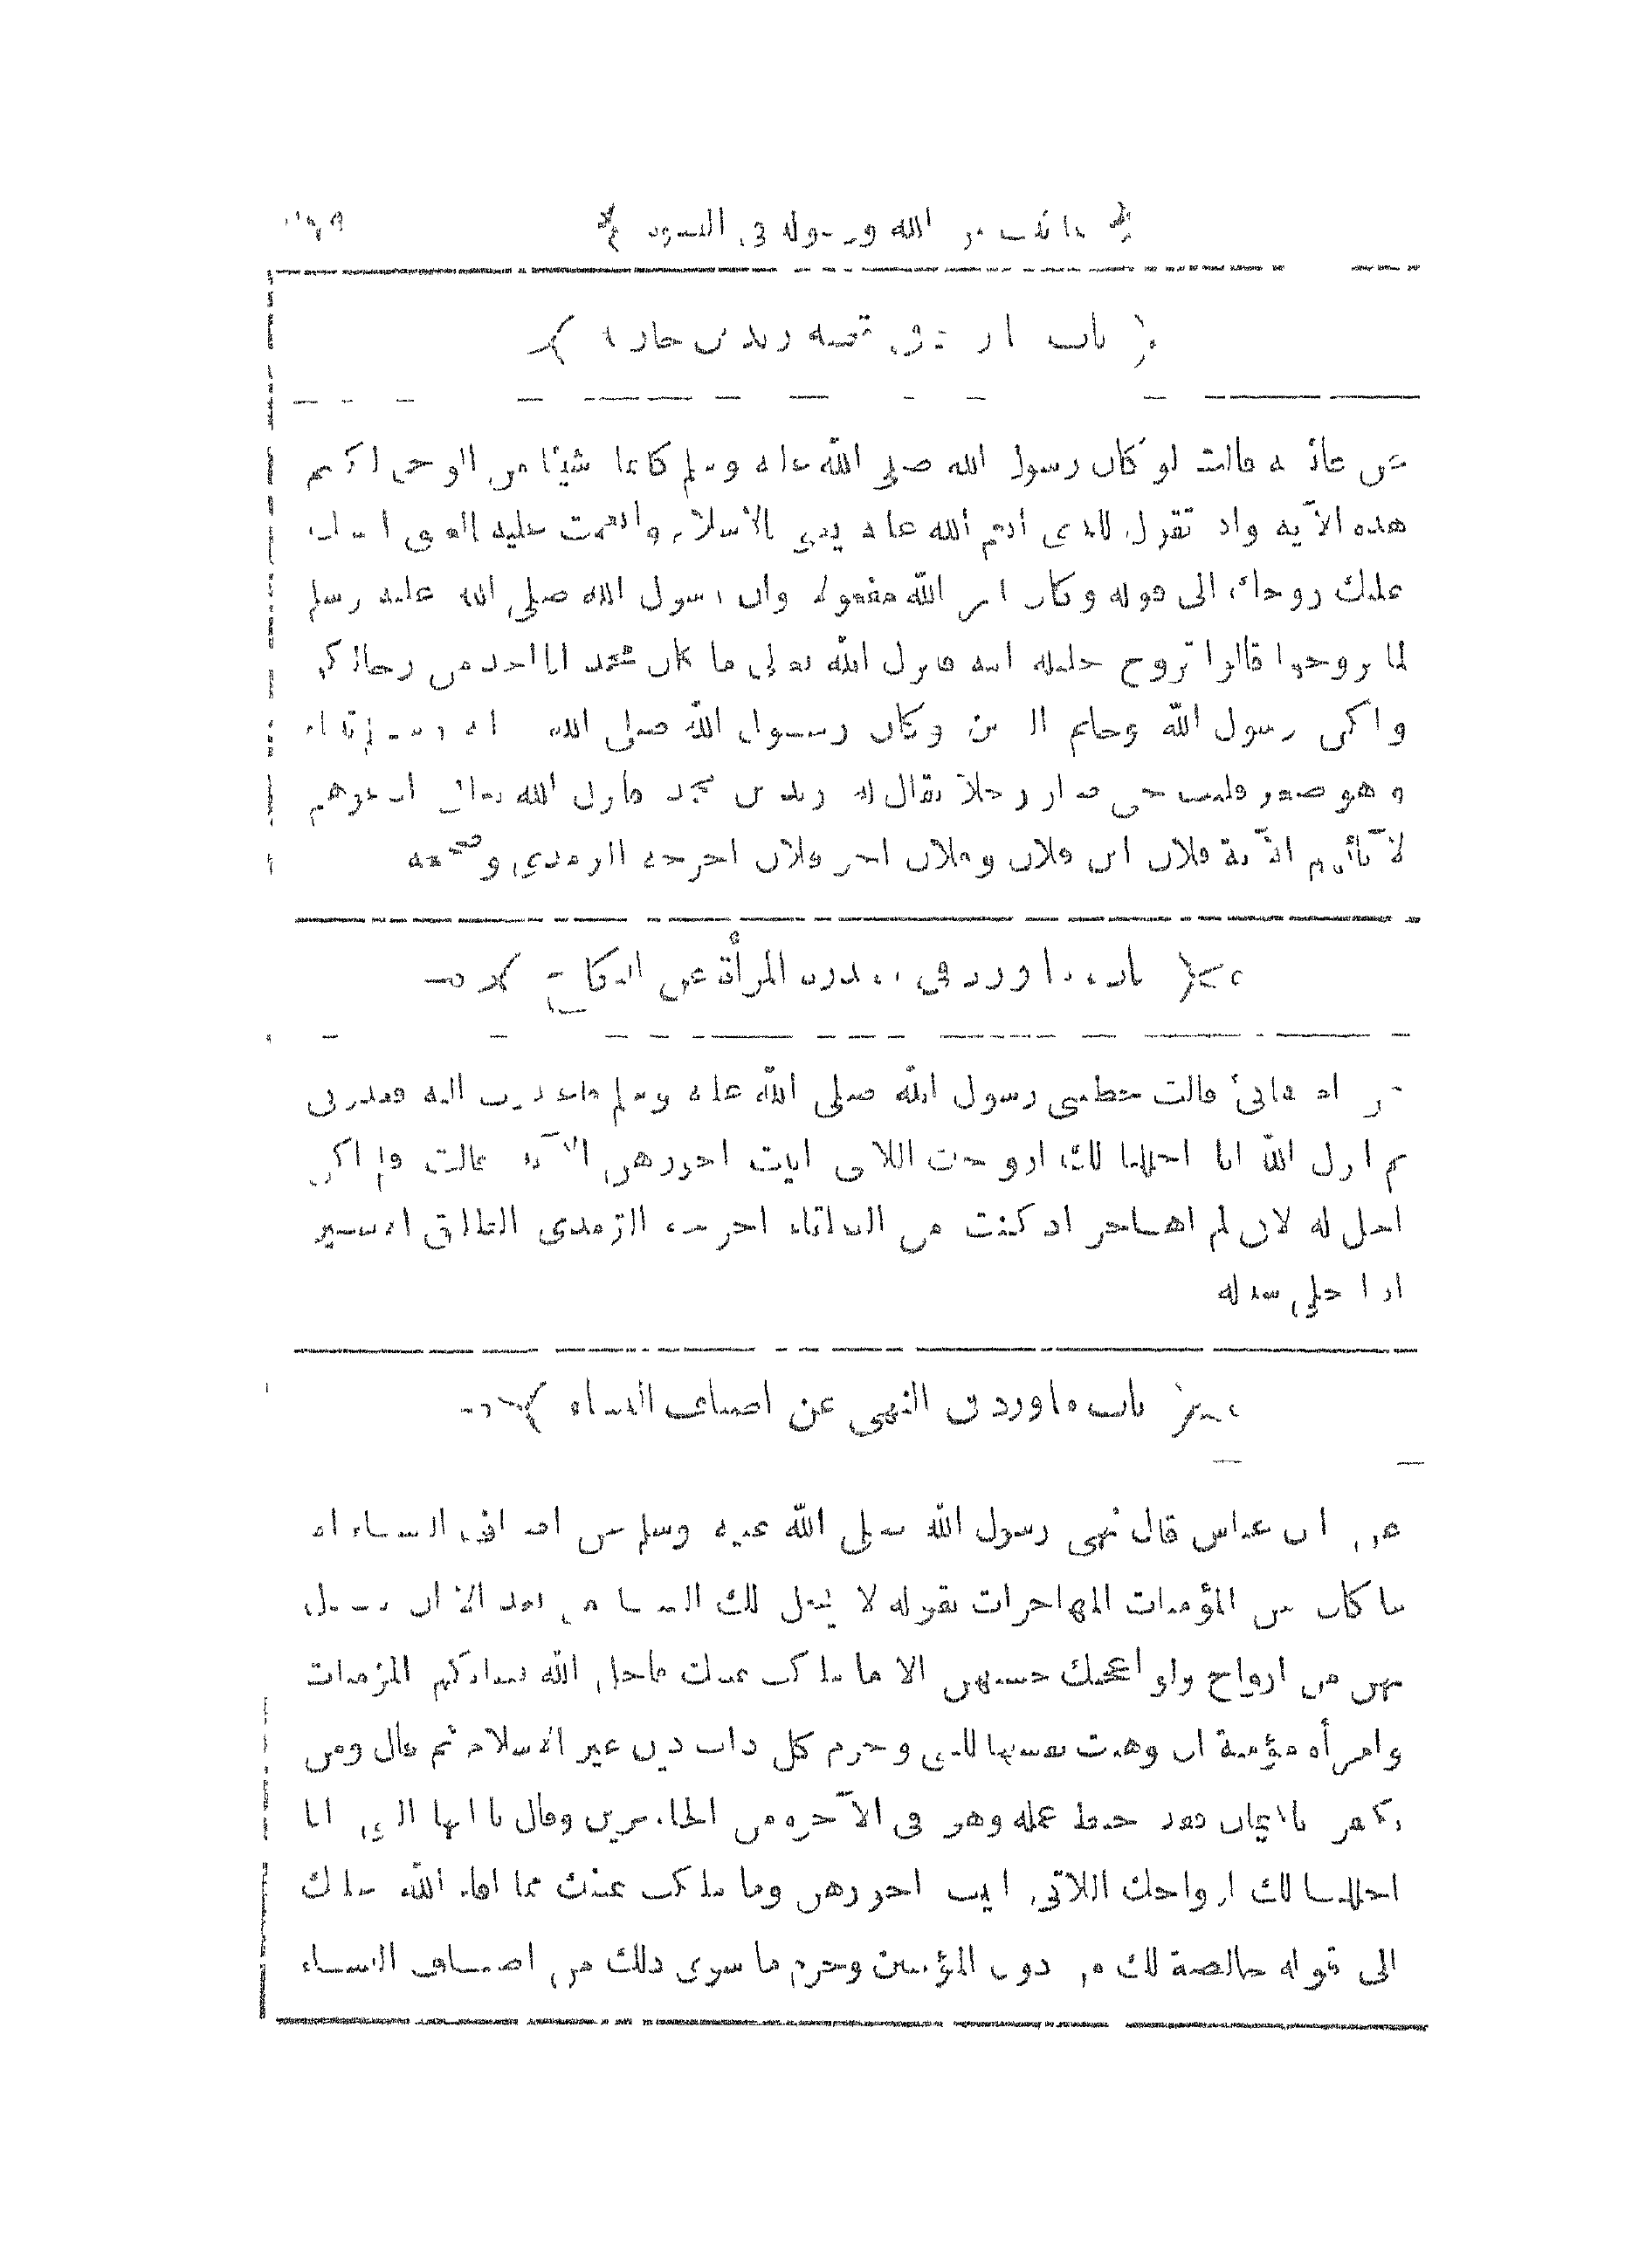 ما ثبت من الله ورسوله في النسوة
باب ما ورد في قصة زيد بن حارثة
عن عائشة قالت لو كان رسول الله صلى الله عليه وسلم كاتما شيئا من الوحي لكتم
هذه الآية واذ تقول للذي أنعم الله عليه يعني بالاسلام وأنعمت عليه بالعتق امسك
عليك زوجك الى قوله وكان امر الله مفعولا وان رسول الله صلى الله عليه وسلم
لما تزوجها قالوا تزوج حليلة ابنه فانزل الله تعالى ما كان محمد ابا احد من رجالكم
ولكن رسول الله وخاتم النبيين وكان رسول الله صلى الله عليه وسلم تبناه
وهو صغير فلبث حتى صار رجلا يقال له زيد بن محمد فانزل الله تعالى ادعوهم
لآبائهم الآية فلان ابن فلان وفلان اخو فلان اخرجه الترمذي وصححه
باب ما ورد في عذر المرأة عن النكاح
عن ام هانئ قالت خطبني رسول الله صلى الله عليه وسلم فاعتذرت اليه فعذرني
ثم انزل الله انا احللنا لك ازواجك اللاتي آتيت اجورهن الآية قالت فلم اكن
احل له لاني لم اهاجر اذ كنت من الطلقاء اخرجه الترمذي الطليق الاسير
اذا خلي سبيله
باب ما ورد في النهي عن اصناف النساء
عن ابن عباس قال نهى رسول الله صلى الله عليه وسلم عن اصناف النساء الا
ما كان من المؤمنات المهاجرات بقوله لا يحل لك النساء من بعد ولا ان تبدل
بهن من ازواج ولو اعجبك حسنهن الا ما ملكت يمينك فاحل الله فتياتكم المؤمنات
وامرأة مؤمنة ان وهبت نفسها للنبي وحرم كل ذات دين غير الاسلام ثم قال ومن
يكفر بالايمان فقد حبط عمله وهو في الآخرة من الخاسرين وقال يا ايها النبي انا
احللنا لك ازواجك اللاتي آتيت اجورهن وما ملكت يمينك مما افاء الله عليك
الى قوله خالصة لك من دون المؤمنين وحرم ما سوى ذلك من اصناف النساء